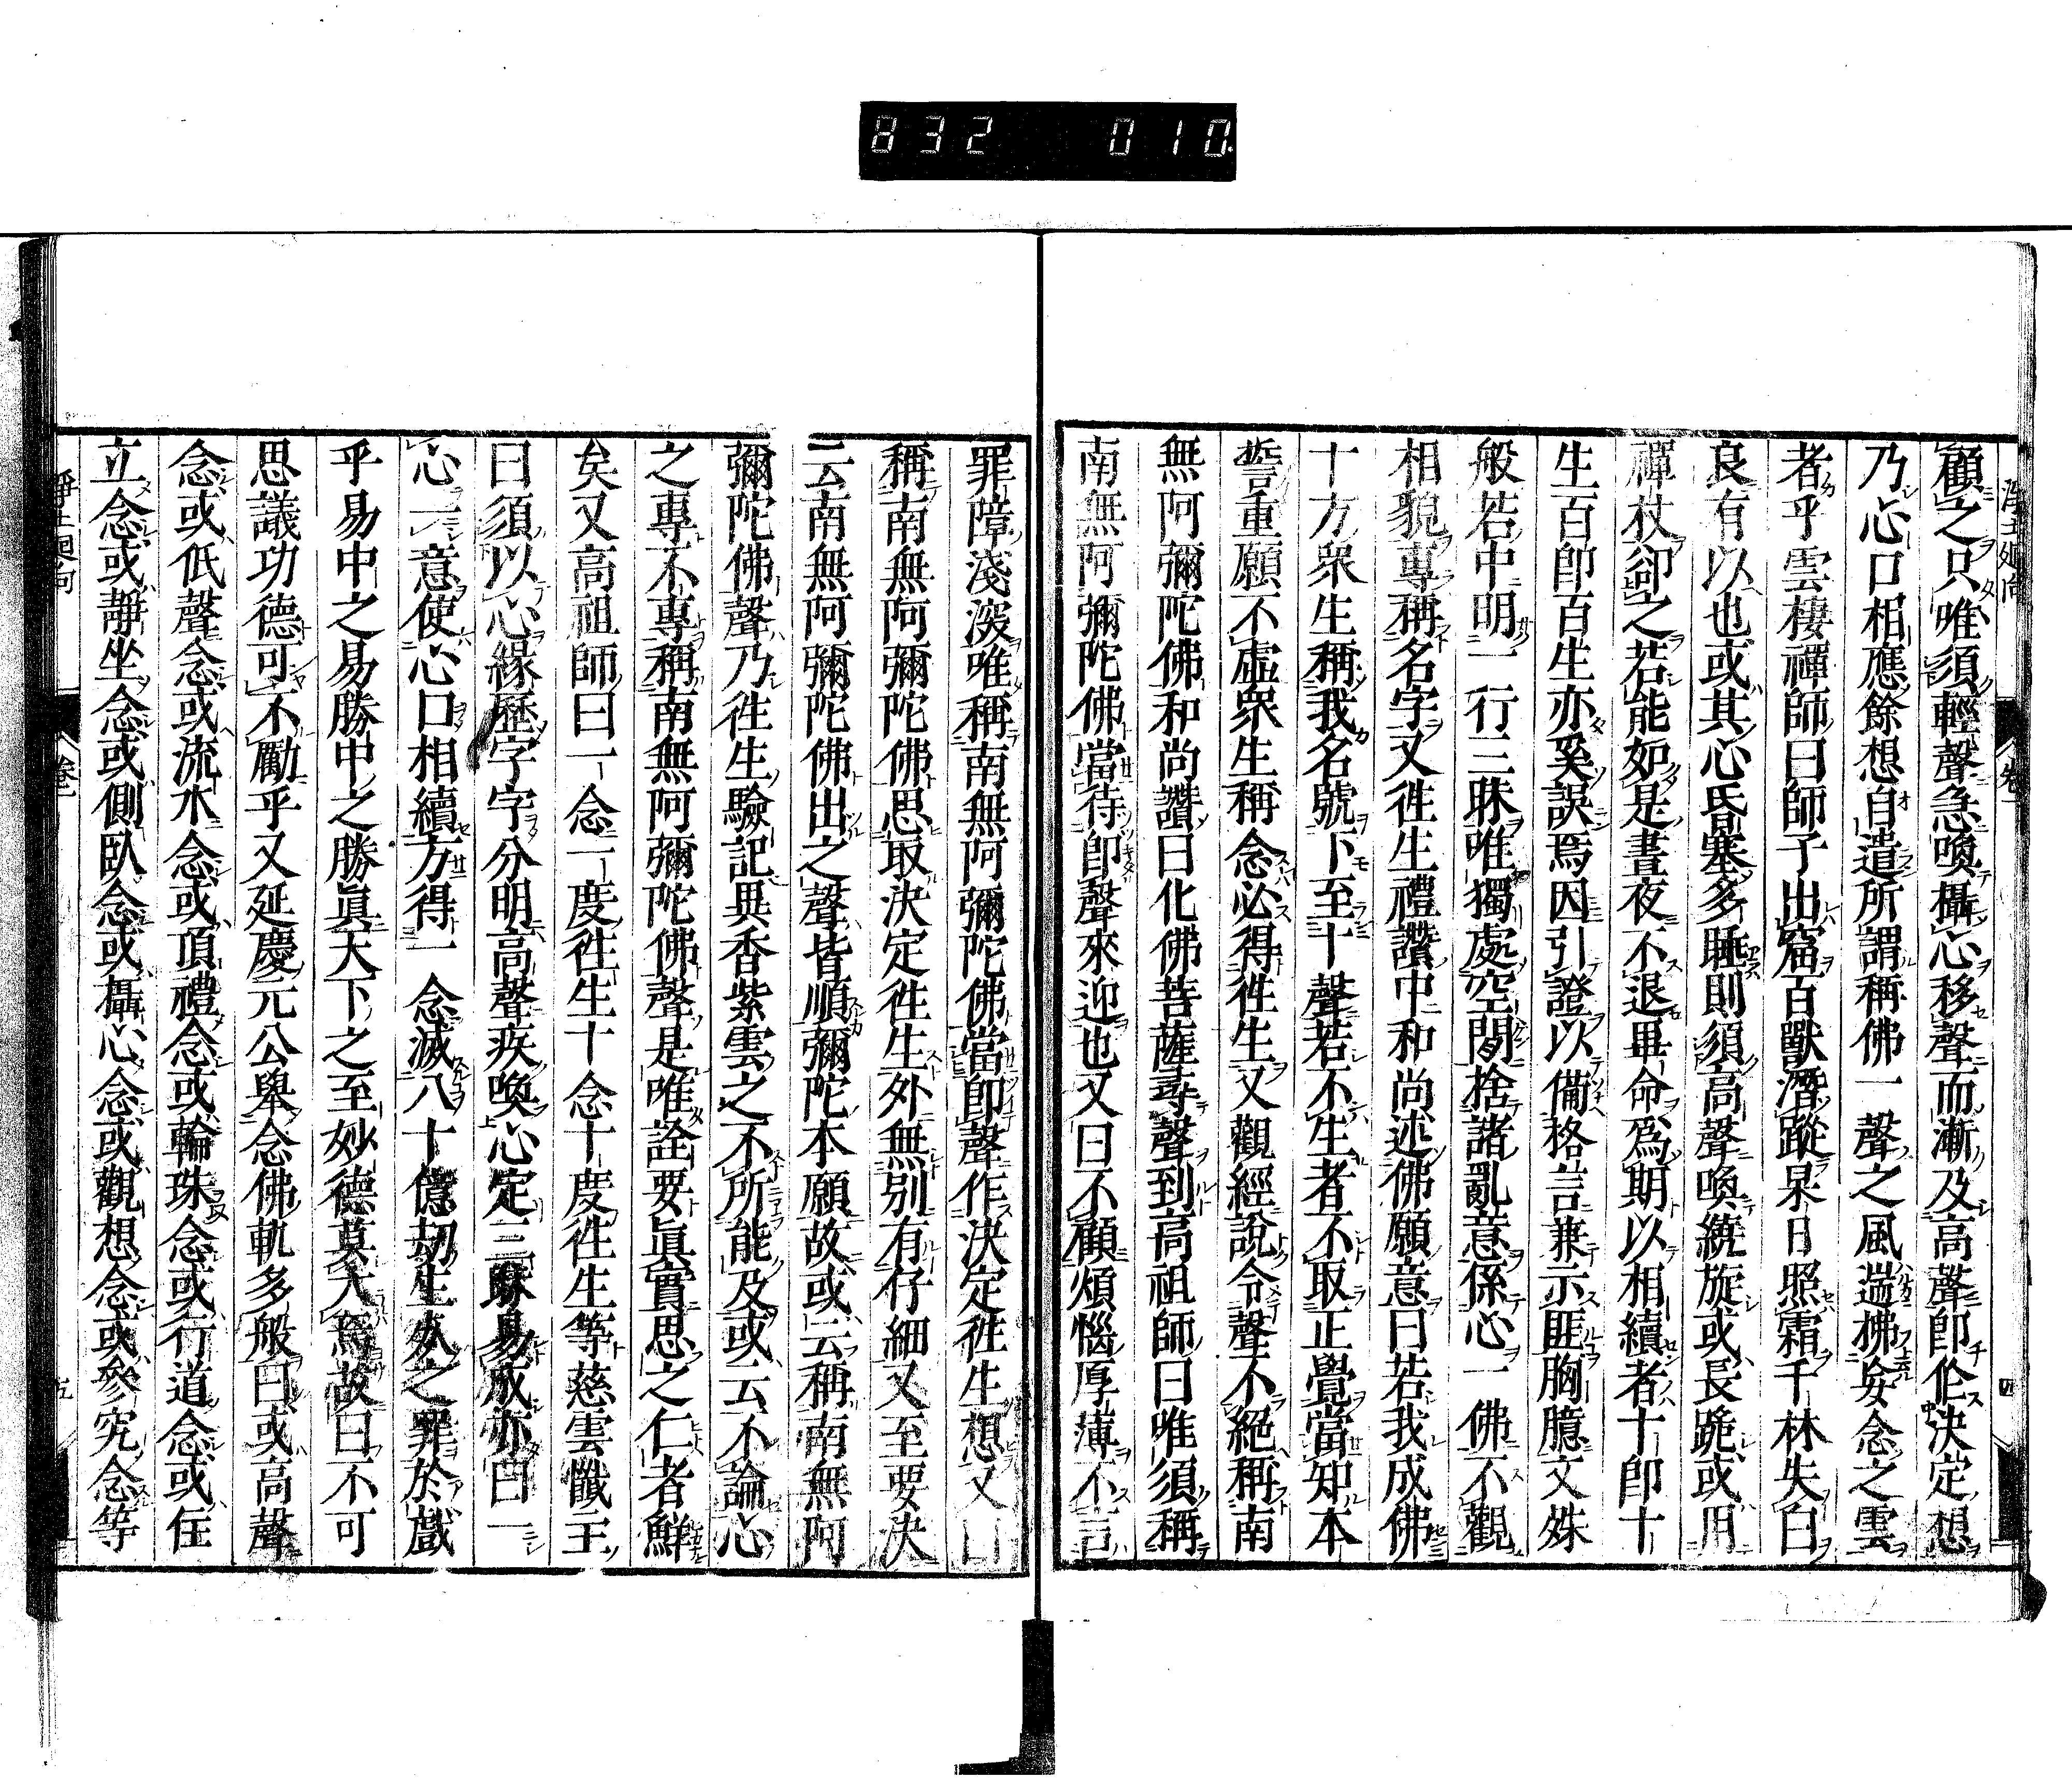 832 010
淨土廻向 卷一 四
顧之只唯須輕聲急喚攝心移聲而漸及高聲即作決定想
乃心口相應餘想自遣所謂稱佛一聲之風遄拂妄念之雲
者乎雲棲禪師曰師子出窟百獸潛蹤杲日照霜千林失白
良有以也或其心昏塞多睡則須高聲喚繞旋或長跪或用
禪杖卻之若能如是晝夜不退畢命爲期以相續者十即十
生百即百生亦奚誤焉因引證以備格言兼示匪胸臆文殊
般若中明一行三昧唯獨處空閒捨諸亂意係心一佛不觀
相貌專稱名字又徃生禮讚中和尚述佛願意曰若我成佛
十方衆生稱我名號下至十聲若不生者不取正覺當知本
誓重願不虛衆生稱念必得徃生又觀經說令聲不絕稱南
無阿彌陀佛和尚讚曰化佛菩薩尋聲到高祖師曰唯須稱
南無阿彌陀佛當待即聲來迎也又曰不顧煩惱厚薄不言
罪障淺深唯稱南無阿彌陀佛當即聲作決定徃生想又曰
稱南無阿彌陀佛思取決定徃生外無別有仔細又至要決
云南無阿彌陀佛出之聲皆順彌陀本願故或云稱南無阿
彌陀佛聲乃徃生驗記異香紫雲之不所能及或云不論心
之專不專稱南無阿彌陀佛聲是唯詮要眞實思之仁者鮮
矣又高祖師曰一念一度徃生十念十度徃生等慈雲懺主
曰須以心緣歷字字分明高聲疾喚心定三昧易成亦曰一
心一意使心口相續方得一念滅八十億劫生死之罪於戲
乎易中之易勝中之勝眞天下之至妙德莫大焉故曰不可
思議功德可不勵乎又延慶元公舉念佛軌多般曰或高聲
念或低聲念或流水念或頂禮念或輪珠念或行道念或住
立念或靜坐念或側臥念或攝心念或觀想念或參究念等
淨土廻向 卷一 五